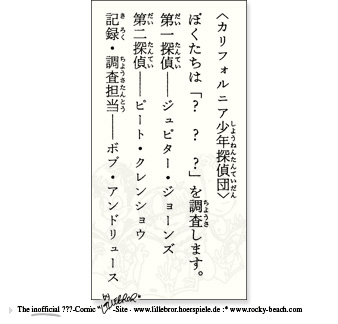 〈カリフォルニア少年探偵団〉
ぼくたちは「？　？　？」を調査します。
第一探偵——ジュピター・ジョーンズ
第二探偵——ピート・クレンショウ
記録・調査担当——ボブ・アンドリュース
by LILLEBROR
The inofficial ???-Comic "LILLEBROR"-Site · www.lillebror.hoerspiele.de :* www.rocky-beach.com